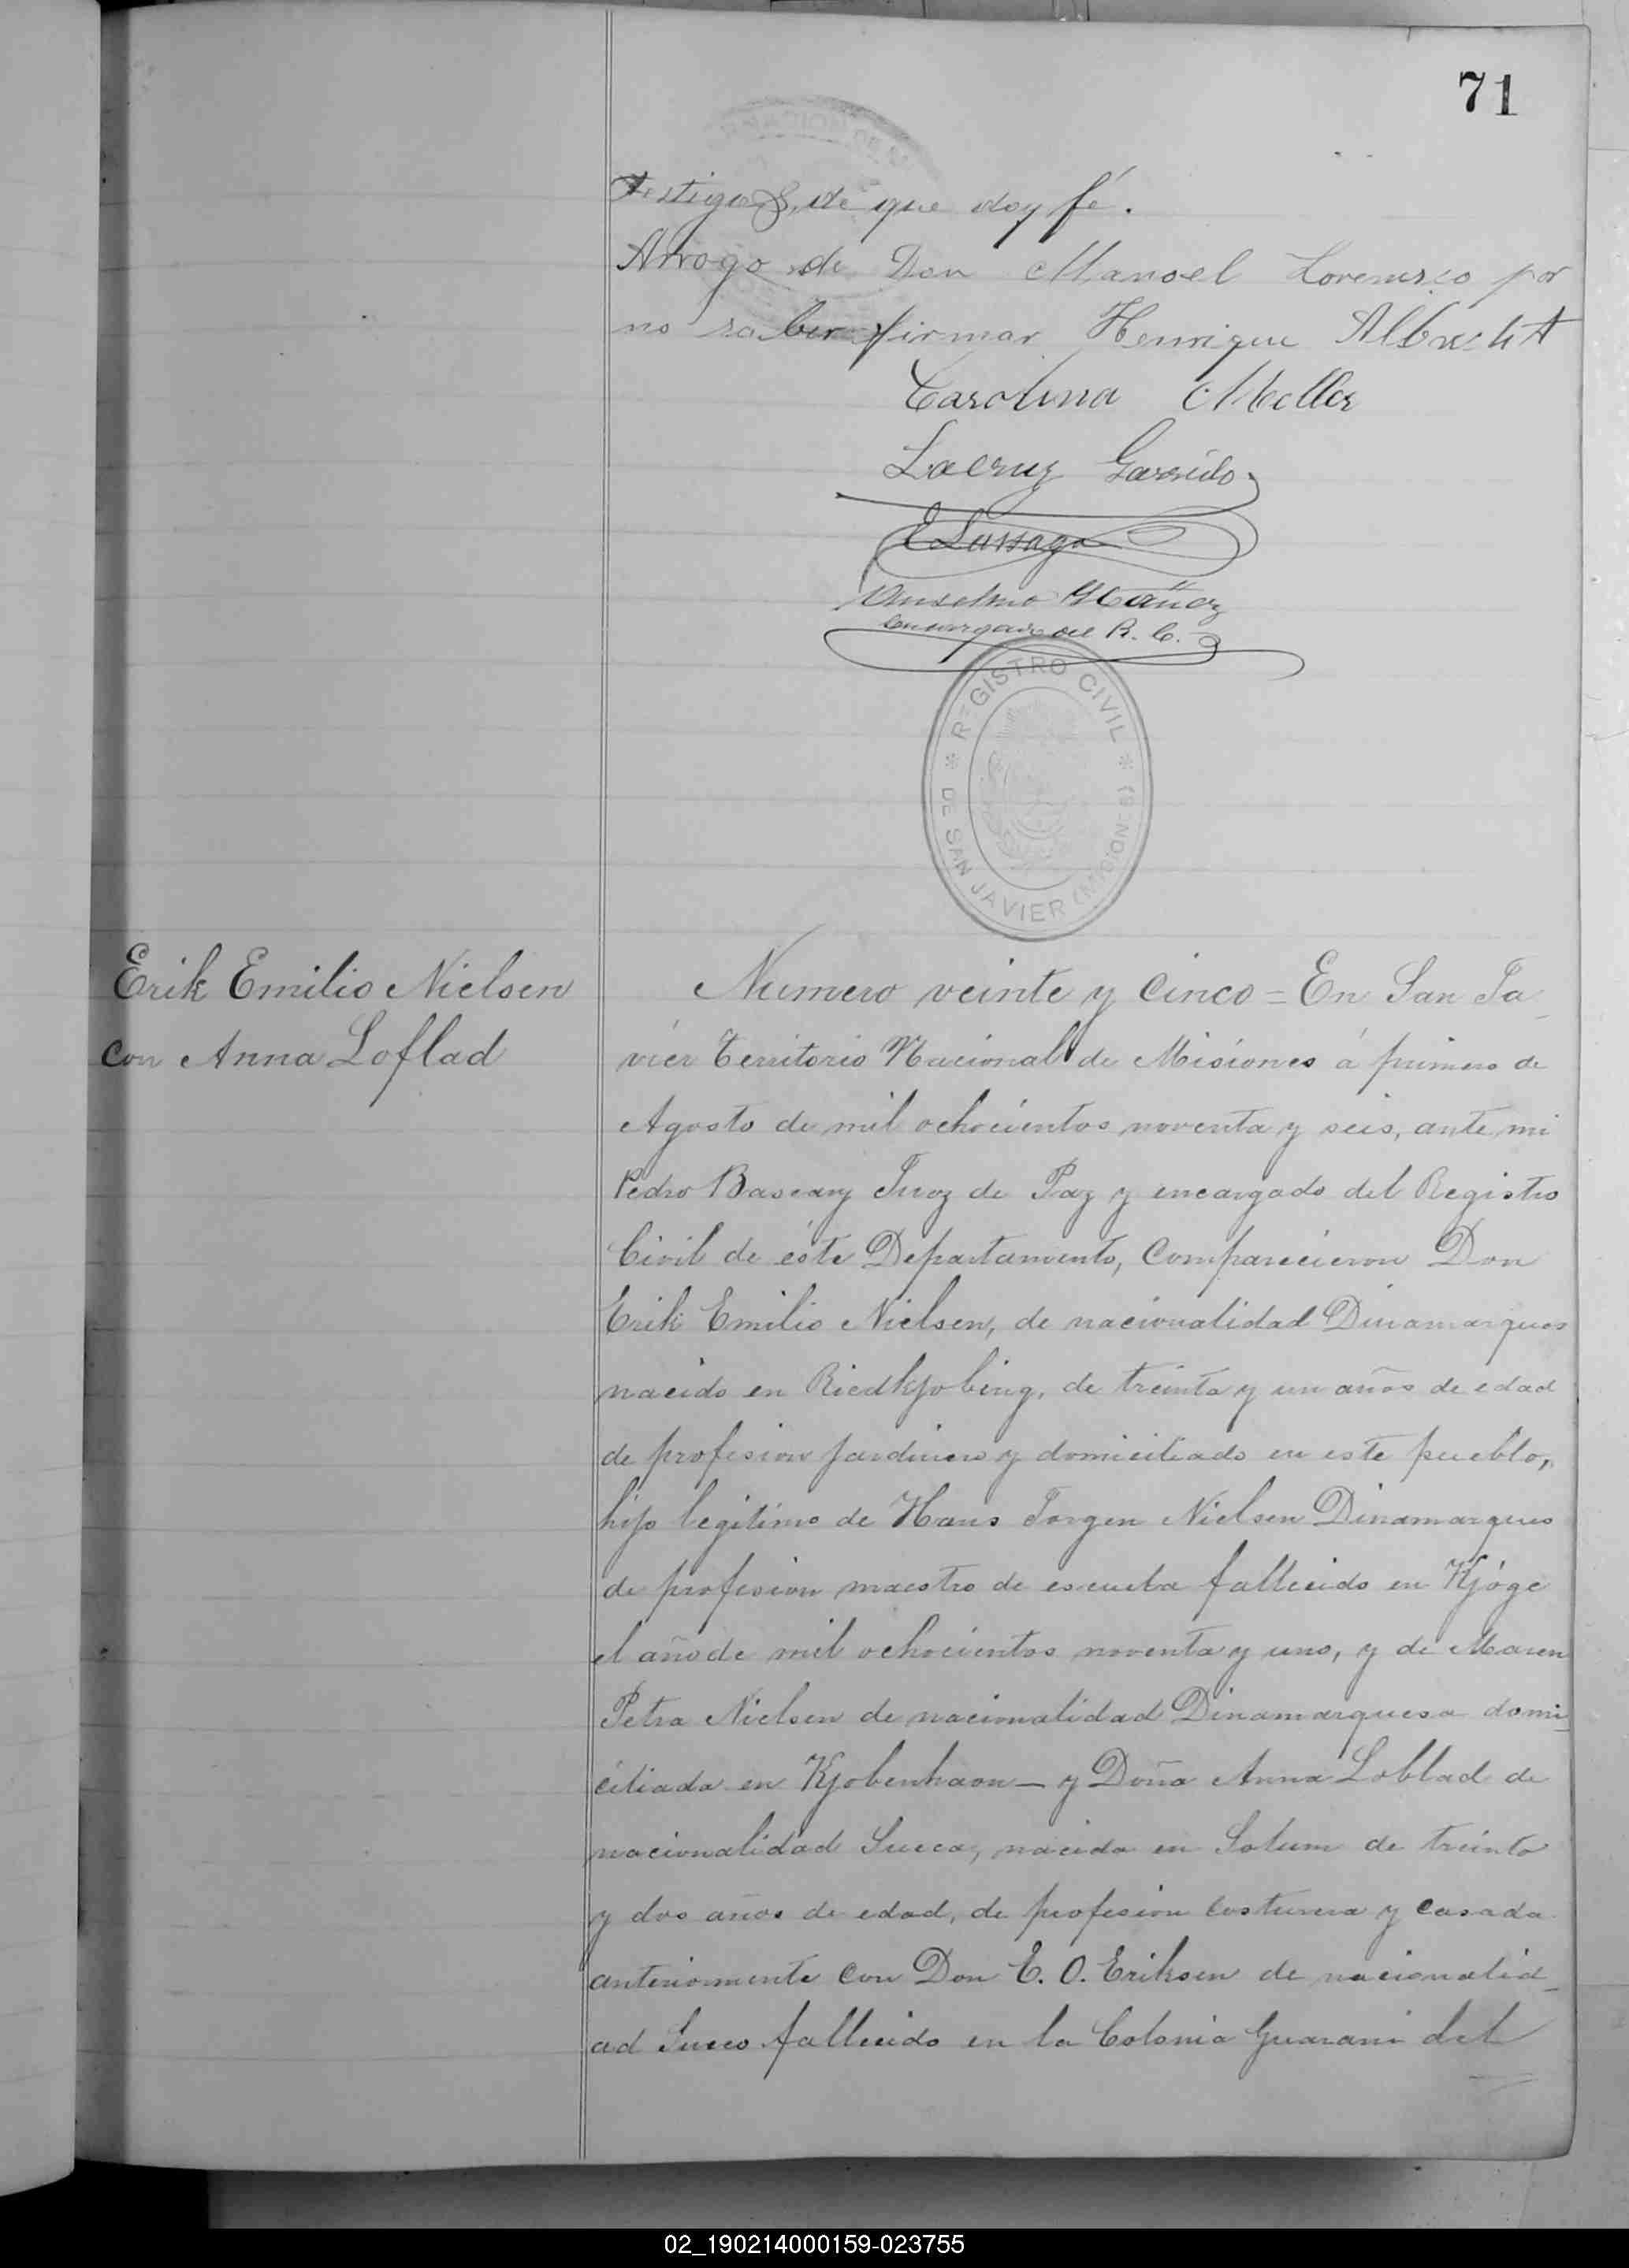 71
testigos, de que doy fé.
Arrogo de Don Manoel Lorenzo por
no saber firmar Henrique Albrecht
Carolina Meller
Lacruz Garrido
Anselmo
encargado del R. C.
REGISTRO CIVIL
DE SAN JAVIER (MISIONES)
Erik Emilio Nielsen
con Anna Loflad
Numero veinte y cinco = En San Ja
vier Territorio Nacional de Misiones á primero de
Agosto de mil ochocientos noventa y seis, ante mi
Pedro Bascary Juez de Paz y encargado del Registro
Civil de éste Departamento, Comparecieron Don
Erik Emilio Nielsen, de nacionalidad Dinamarques
nacido en Riedkjobing, de treinta y un años de edad
de profesion jardinero y domiciliado en este pueblo,
hijo legitimo de Hans Jorgen Nielsen Dinamarques
de profesion maestro de escuela fallecido en Kjöge
el año de mil ochocientos noventa y uno, y de Maren
Petra Nielsen de nacionalidad Dinamarquesa domi
ciliada en Kjobenhaon – y Doña Anna Loblad de
nacionalidad Sueca, nacida en Solum de treinta
y dos años de edad, de profesion costurera y casada
anteriormente con Don E. O. Eriksen de nacionalid
ad Sueco fallecido en la Colonia Guarani del
02_190214000159-023755